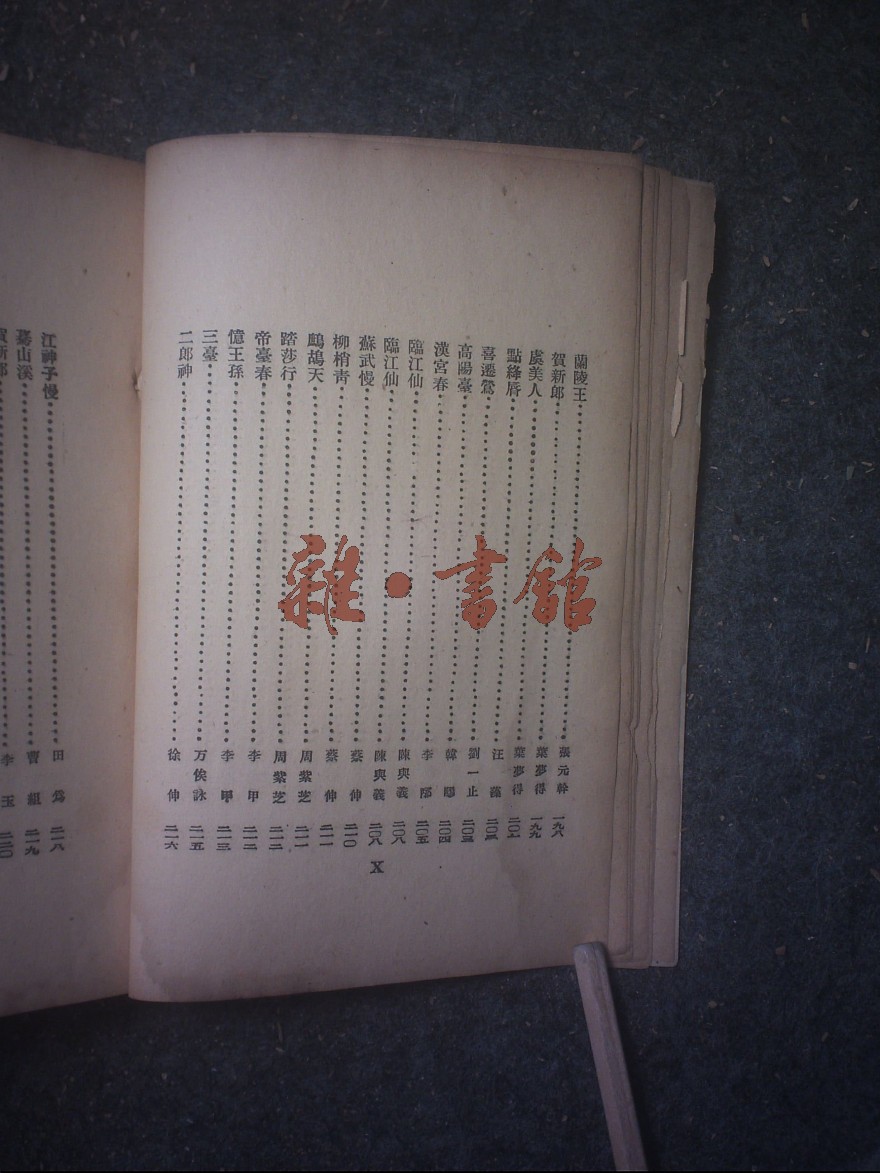 蘭陵王………張元幹 一九八
賀新郎………葉夢得 一九九
虞美人………葉夢得 二〇一
點絳唇………汪藻
喜遷鶯………劉一止 二〇三
高陽臺………韓疁 二〇四
漢宮春………李邴 二〇五
臨江仙………陳與義 二〇八
臨江仙………陳與義 二〇八
蘇武慢………蔡伸 二一〇
柳梢青………蔡伸 二一一
鷓鴣天………周紫芝 二一一
踏莎行………周紫芝 二一二
帝臺春………李甲 二一二
憶王孫………李甲 二一三
三臺………万俟詠 二一五
二郎神………徐伸 二一六
X
江神子慢………田為 二一八
驀山溪………曹組 二一九
賀新郎………李玉 二二〇
雜·書館